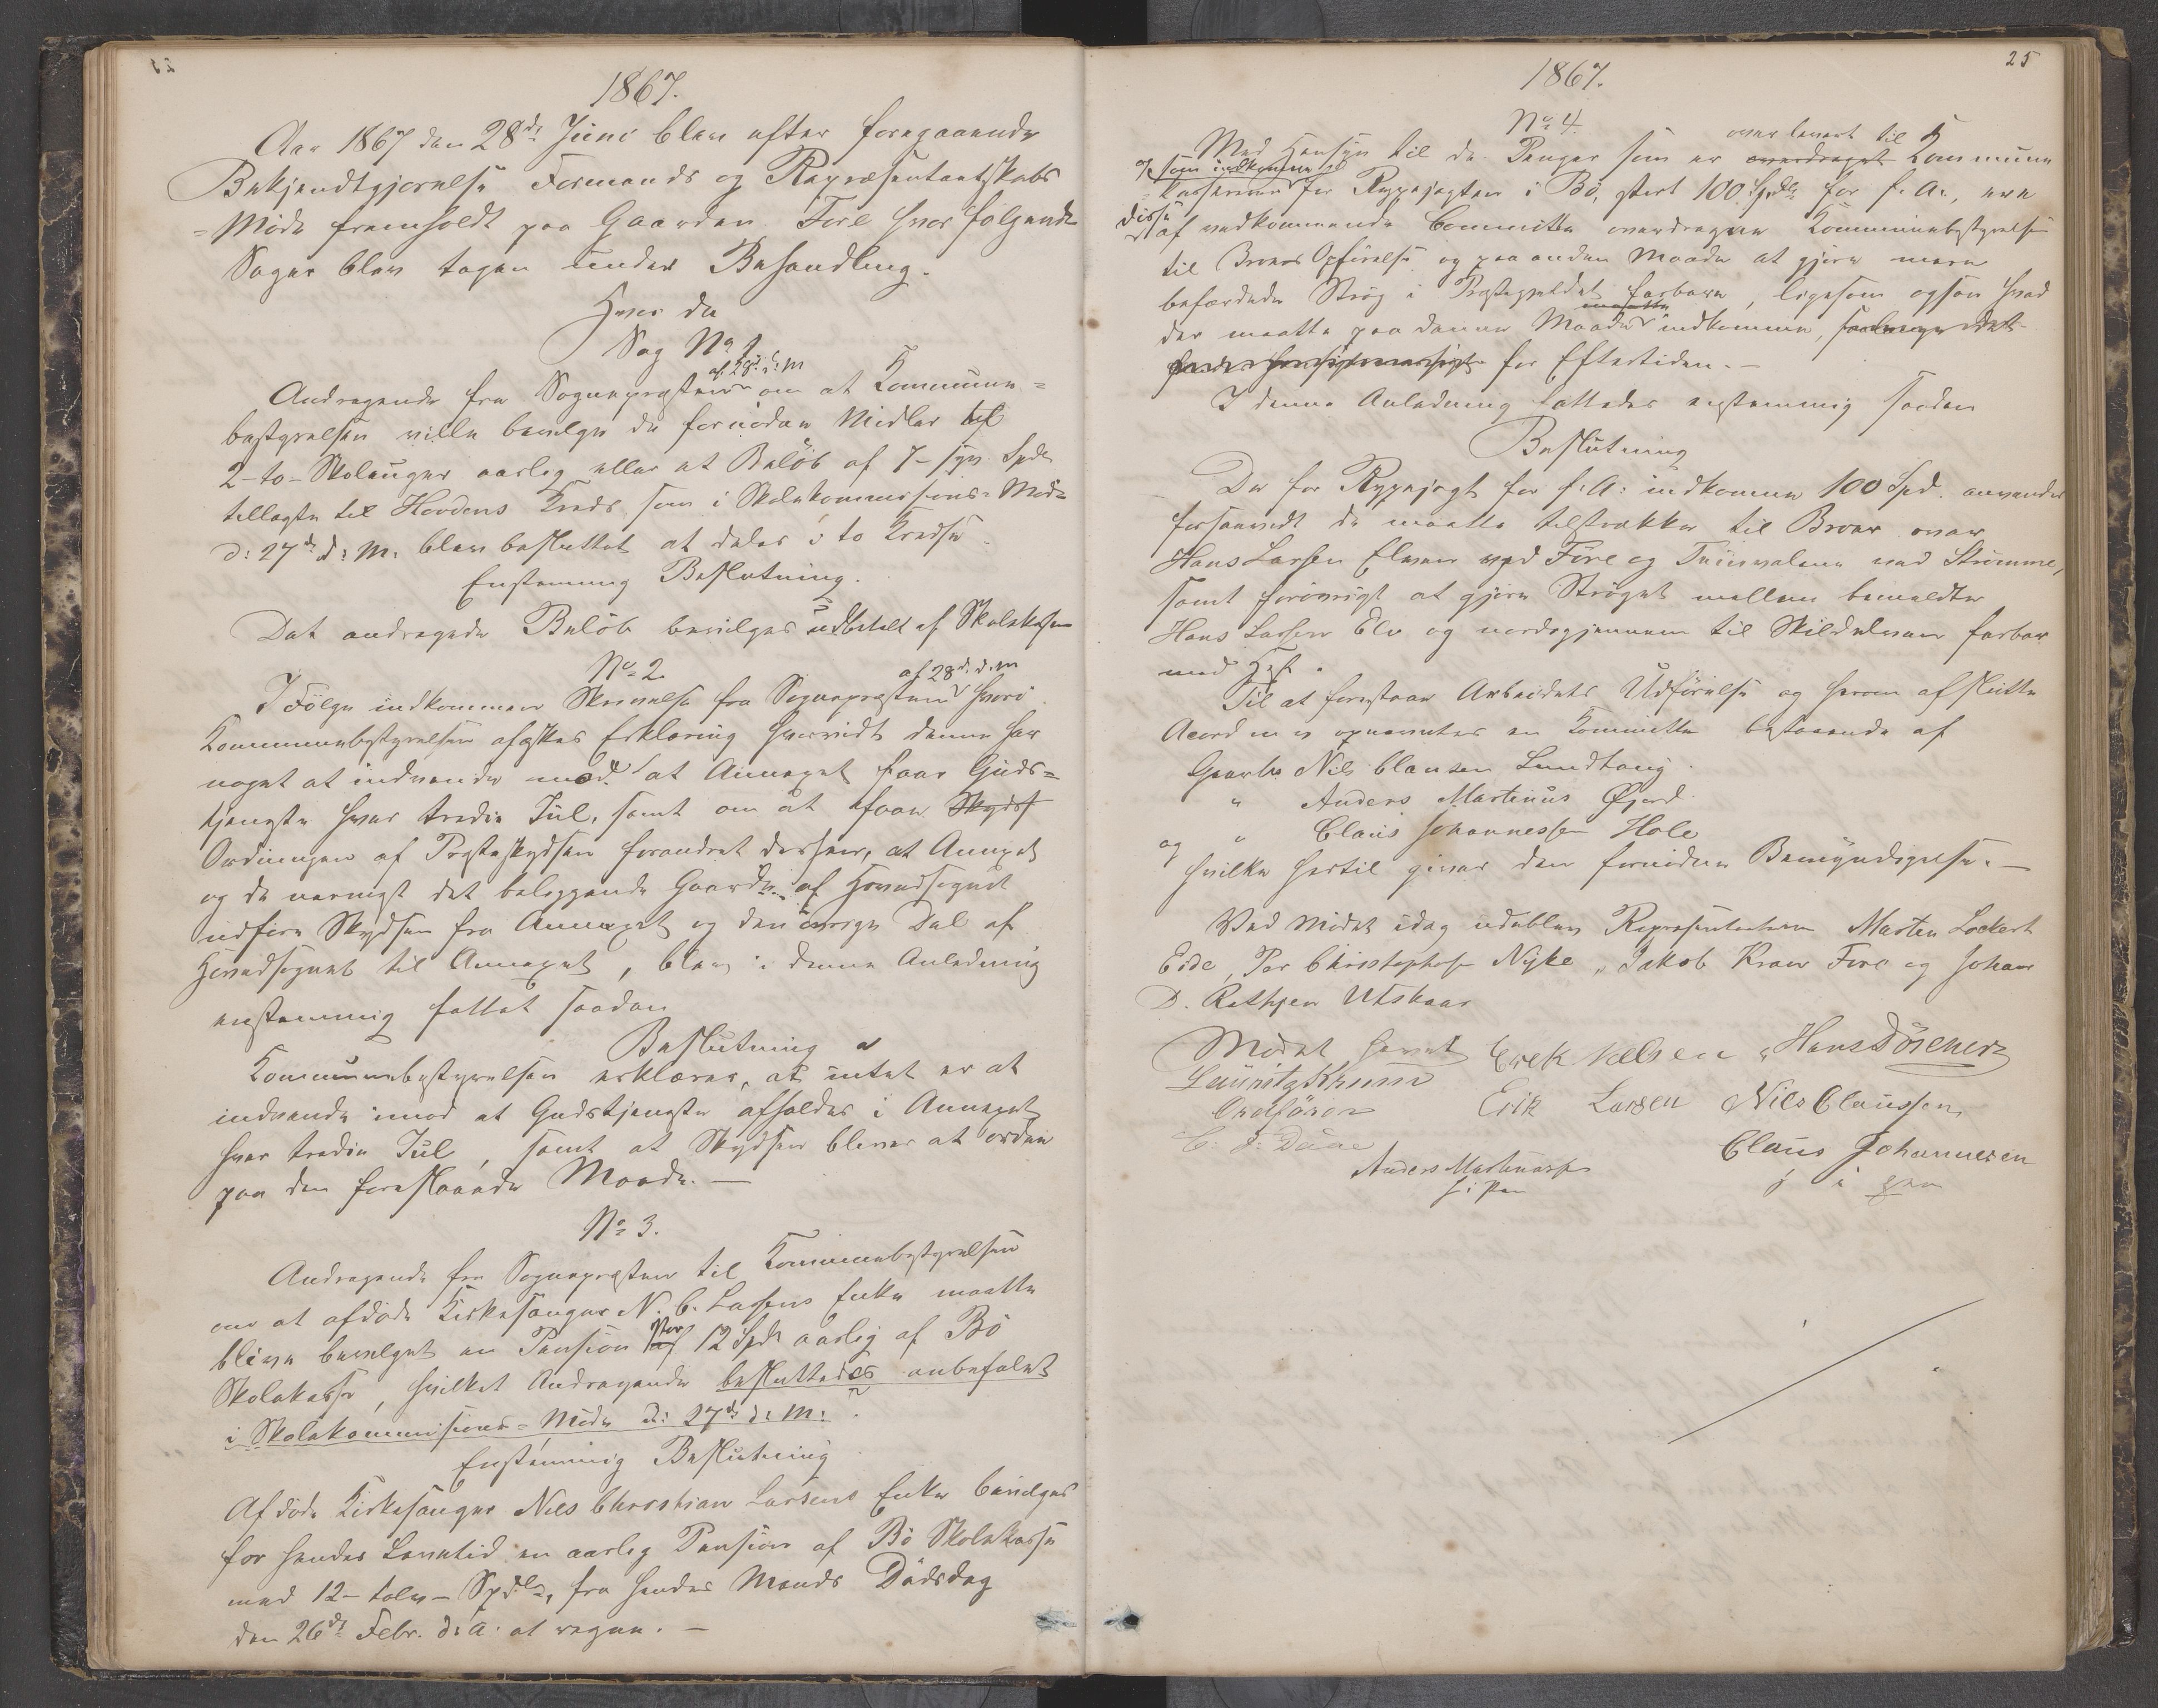 1867.
Aar 1867 den 28de Juni blev efter foregaaende
Bekjendtgjørelse Formands og Repræsentantskabs
=Møde fremholdt paa Gaarden Føre hvor følgende
Sager blev tagen under Behandling.
Hvor da
Sag No 1
af 28de d: M
Andragende fra Sognepræsten om at Kommune=
bestyrelsen ville bevilge de fornødne Midler til
2-to-Skoleuger aarlig eller et Beløb af 7-syv Spdlr
tillagte til Hovdens Kreds, som i Skolekommissions-Møde
d: 27de d: M: blev besluttet at deles i to Kredse.
Enstemmig Beslutning.
Det andragede Beløb bevilges udbetalt af Skolekassen
No 2.
af 28de d. M
I Følge indkommen Skrivelse fra Sognepræsten hvori
Kommunebestyrelsen afæskes Erklæring hvorvidt denne har
noget at indvende mod at Annexet faar Guds=
tjeneste hver tredie Jul, samt om at faa Skyds
Ordningen af Præsteskydsen forandret derhen, at Annexet
og de nærmest det beliggende Gaarde af Hovedsognet
udføre Skydsen fra Annexet og den øvrige Del af
Hovedsognet til Annexet, blev i denne Anledning
enstemmig fattet saadan
Beslutning
Kommunebestyrelsen erklærer, at intet er at
indvende imod at Gudstjeneste afholdes i Annexet
hver tredie Jul, samt at Skydsen bliver at ordne
paa den foreslaaede Maade. —
No 3.
Andragende fra Sognepræsten til Kommunebestyrelsen
om at afdøde Kirkesanger N. C. Larsens Enke maatte
blive bevilget en Pension stor 12 Spdlr aarlig af Bø
Skolekasse, hvilket Andragende besluttedes anbefalet
i Skolekommissions=Møde d: 27de d: M:
Enstemmig Beslutning
Afdøde Kirkesanger Nils Christian Larsens Enke bevilges
for hendes Levetid en aarlig Pension af Bø Skolekasse
med 12-tolv-Spdlr, fra hendes Mands Dødsdag
den 26de Febr. d: A: at regne. —
25
1867.
No 4.
over levert til
Med Hensyn til de Penger som er overdraget Kommune
som indkommen
kasserer for Rypejagten i Bø, stort 100 Spdlr for f. A., ere
disse
af vedkommende Committe overdragen Kommunebestyrelsen
til Broers Opførelse og paa anden Maade at gjøre mere
befærdede Strøg i Præstegjeldet farbare, ligesom ogsaa hvad
maatte
der maatte paa denne Maade indkomme, saalenge det
for Eftertiden. —
I denne Anledning fattedes enstemmig saadan
Beslutning
De for Rypejagt for f: A: indkomne 100 Spd. anvendes
forsaavidt de maatte tilstrække til Broer over
Hans Larsen Elven ved Føre og ved Strømme,
samt forøvrigt at gjøre Strøget mellem bemeldte
Hans Larsen Elv og nordigjennem til Skildelven farbar
med Hest.
Til at forestaae Arbeidets Udførelse og herom afslutte
Acord m v opnævntes en Committe bestaaende af
Gaardbr. Nils Clausen Lundtang.
" Anders Martinus Øgard.
og " Claus Johannessen Hole
hvilke hertil gives den fornødne Bemyndigelse. —
Ved Mødet idag udebleve Repræsentanterne Marten Lockert
Eide, Per Christophers Nyke, Jakob Kraer Føre og Johan
D. Rathjen Utskaar
Mødet hævet
Erek Nelsen
Hans Dörener
Lauritz Krum
Ordfører
Erik Larsen
Nils Claussen
C. J. Daae
Anders Martinussen
Claus Johannesen